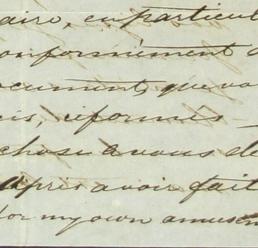 aire, en particul
onformément a
ocument, que vo
is, réformés
chose a vous de
après avoir fait
for my own amusem